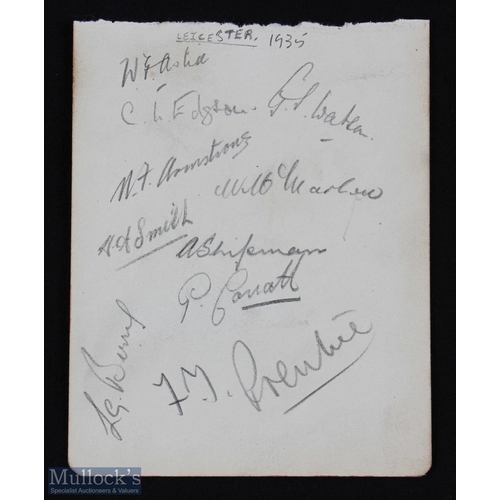 LEICESTER. 1935
W E Astill
C. L. Edgson. G. S. Watson.
N. F. Armstrong
W H Marlow
H A Smith
A Shipman
P. Corrall
L. G. Berry
F. T. Prentice
Mullock's
Specialist Auctioneers & Valuers